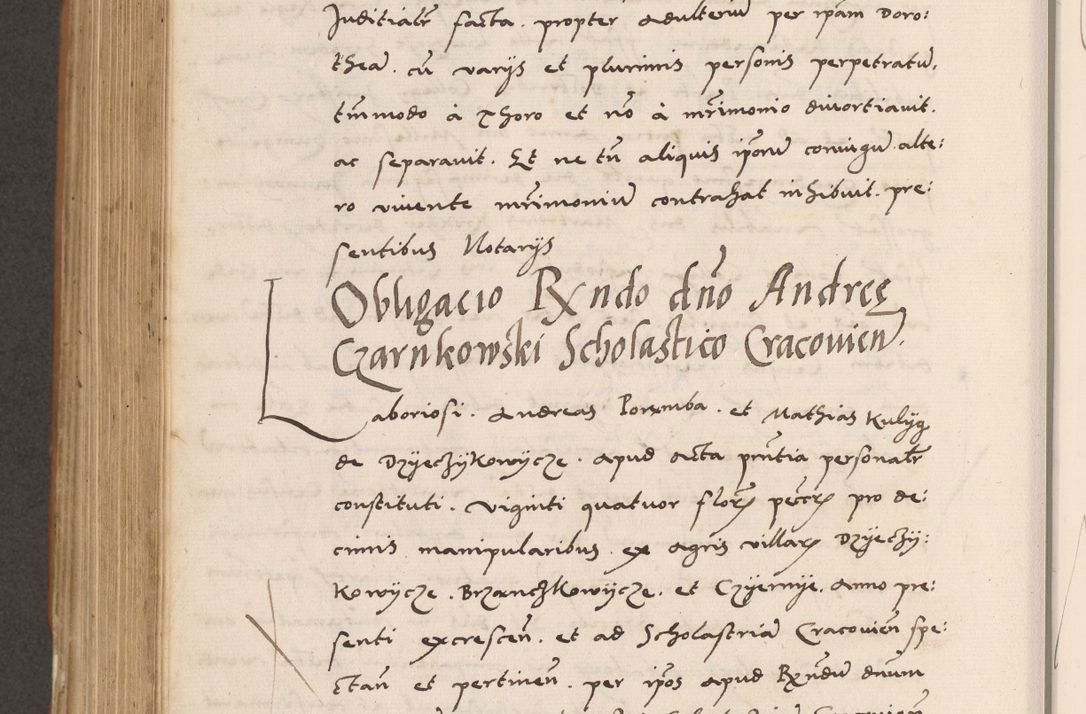 Juditialr facta. propter adulteriu per ipam Doro:
theã. cũ varijs et plurimis personis perpetratũ.
tmmodo à Thoro et nõ à mrimonio divortiavit.
ac separavit. Et ne tñ aliquis iporũ coniugũ. alte:
ro vivente mrimoniũ contrahat inhibuit. pre:
sentibus Notarijs
Obligacio Rxndo dño Andreę
Czarnkowski Scholastico Cracovieñ.
Laboriosi. Andreas Poremba. et Mathias Kulyg
de Dzyechykowycze. apud acta pñtia personalr
constituti. viginti quatuor flor pecc pro de:
cimis manipularibus. ex agris villar Dzyechy:
kowycze. Brzanchkowycze. et Czyernye. anno pre:
senti excresceñ. et ad Scholastriã Cracovieñ spe:
ctañ et pertineñ. per ipos apud Rxndũ dnum